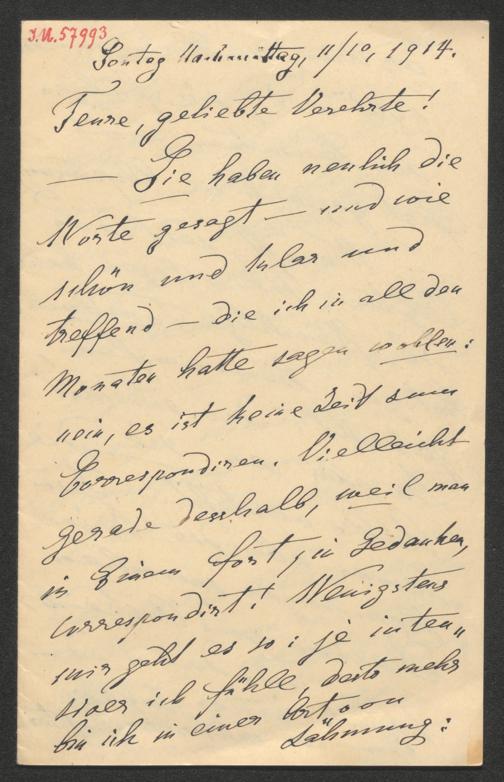 J.N. 57993
Sontag Nachmittag, 11/10, 1914.
Teure, geliebte Verehrte!
— Sie haben neulich die
Worte gesagt — und wie
schön und klar und
treffend — die ich in all den
Monaten hatte sagen wollen:
nein, es ist keine Zeit zum
Correspondiren. Vielleicht
gerade desshalb, weil man
in Einem fort, in Gedanken,
correspondirt! Wenigstens
mir geht es so: je inten„
siver ich fühle, desto mehr
bin ich in einer Art von
Lähmung: